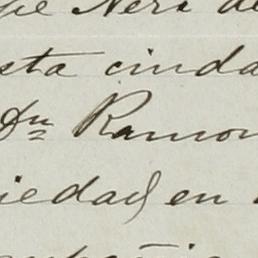 Neri de
sta ciuda
Dn Ramon
iedad en